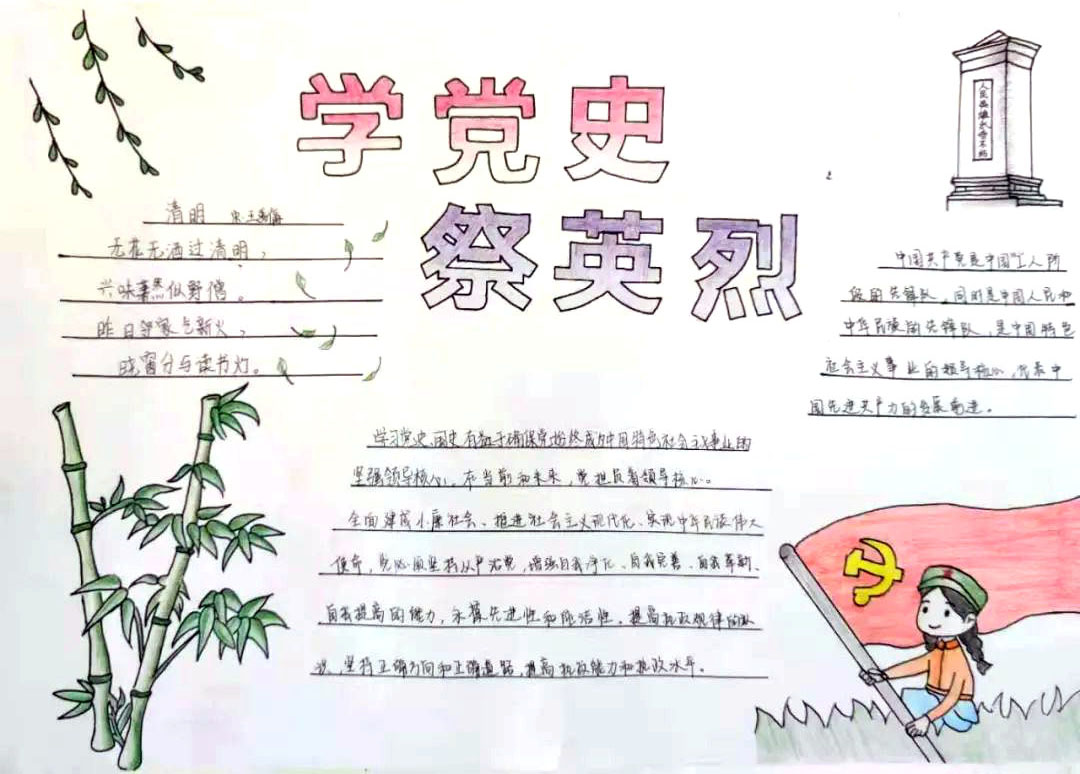 学党史
祭英烈
人民英雄永垂不朽
清明 宋 王禹偁
无花无酒过清明,
兴味萧然似野僧。
昨日邻家乞新火,
晓窗分与读书灯。
中国共产党是中国工人阶
级的先锋队,同时是中国人民和
中华民族的先锋队,是中国特色
社会主义事业的领导核心,代表中
国先进生产力的发展前进。
学习党史、国史有益于确保党始终成为中国特色社会主义事业的
坚强领导核心,在当前和未来,党担负着领导核心。
全面建成小康社会、推进社会主义现代化、实现中华民族伟大
使命,党必须坚持从严治党,增强自我净化、自我完善、自我革新、
自我提高的能力,永葆先进性和纯洁性,提高执政规律的认
识,坚持正确方向和正确道路,提高执政能力和执政水平。